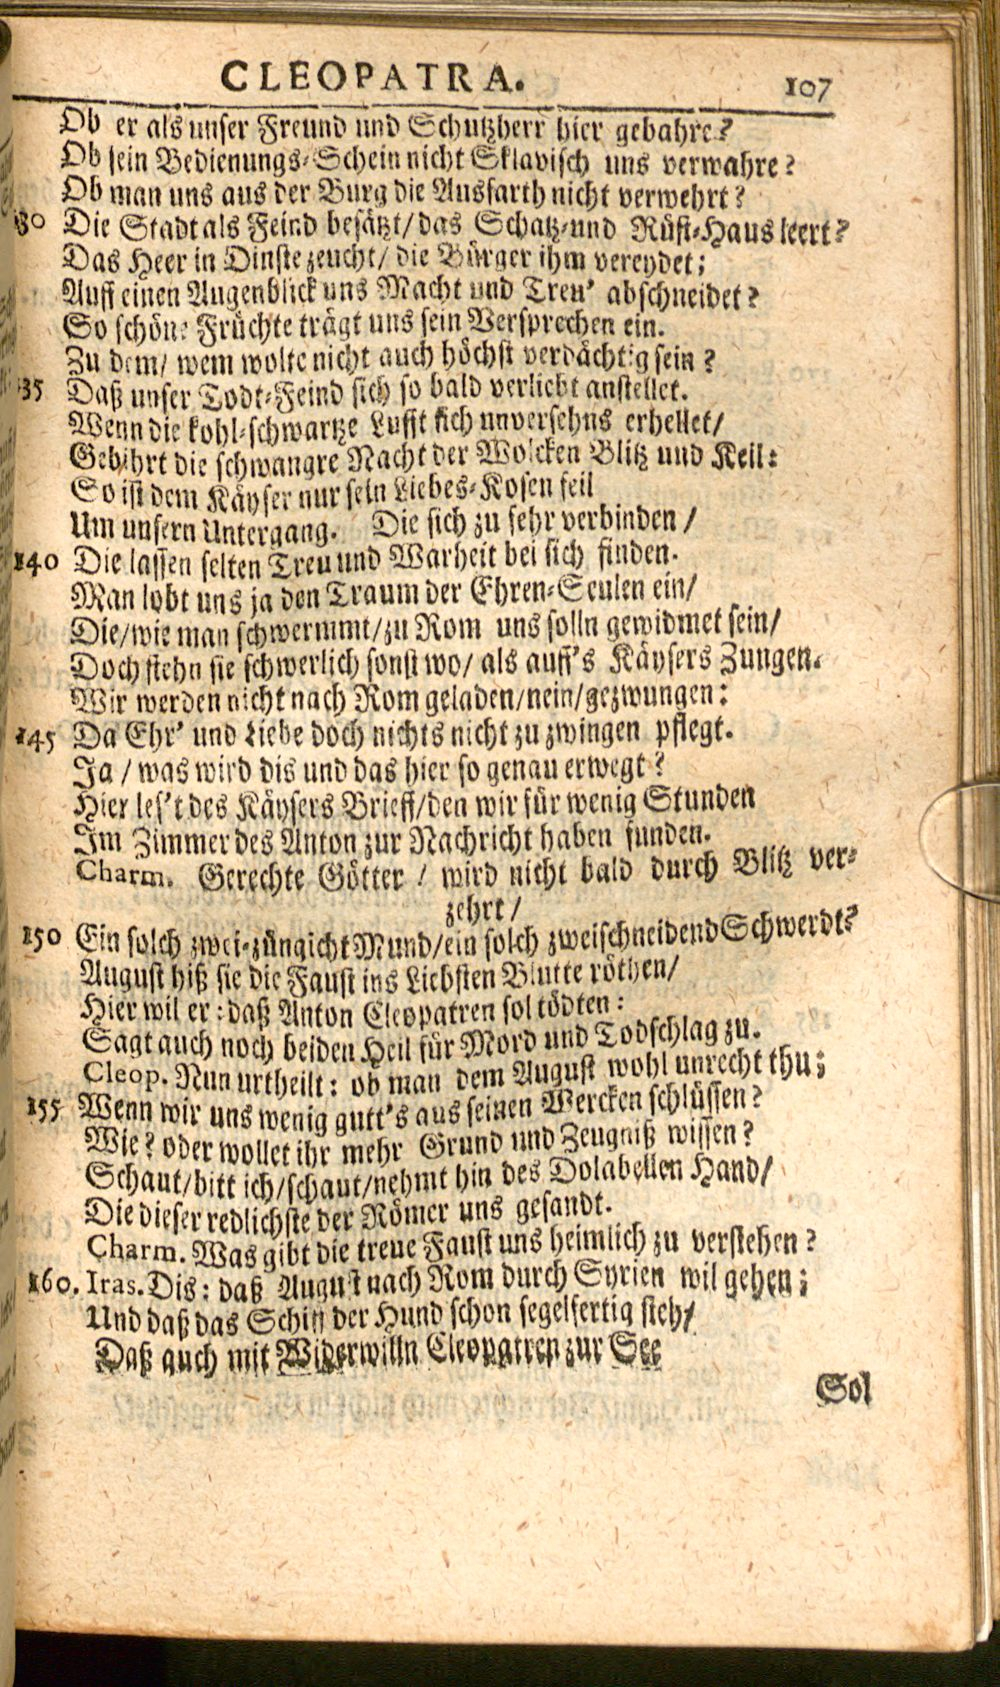 CLEOPATRA. 107
Ob er als unser Freund und Schutzherr hier gebahre?
Ob sein Bedienungs-Schein nicht Sklavisch uns verwahre?
Ob man uns aus der Burg die Ausfarth nicht verwehrt?
130 Die Stadt als Feind besätzt/das Schatz-und Rüst-Haus leert?
Das Heer in Dinste zeucht/ die Bürger ihm vereydet;
Auff einen Augenblick uns Macht und Treu' abschneidet?
So schöne Früchte trägt uns sein Versprechen ein.
Zu dem/ wem wolte nicht auch höchst verdächtig sein?
135 Daß unser Todt-Feind sich so bald verliebt anstellet.
Wenn die kohl-schwartze Lufft sich unversehns erhellet/
Gebihrt die schwangre Nacht der Wolcken Blitz und Keil:
So ist dem Käyser nur sein Liebes-Kosen feil
Um unsern Untergang. Die sich zu sehr verbinden/
140 Die lassen selten Treu und Warheit bei sich finden.
Man lobt uns ja den Traum der Ehren-Seulen ein/
Die/wie man schwermmt/zu Rom uns solln gewidmet sein/
Doch stehn sie schwerlich sonst wo/ als auff's Käysers Zungen.
Wir werden nicht nach Rom geladen/nein/gezwungen:
145 Da Ehr' und Liebe doch nichts nicht zu zwingen pflegt.
Ja/was wird dis und das hier so genau erwegt?
Hier les't des Käysers Brieff/den wir für wenig Stunden
Im Zimmer des Anton zur Nachricht haben funden.
Charm. Gerechte Götter! wird nicht bald durch Blitz ver-
zehrt/
150 Ein solch zwei-züngicht Mund/ein solch zweischneidend Schwerdt?
August hiß sie die Faust ins Liebsten Blutte röthen/
Hier wil er: daß Anton Cleopatren sol tödten:
Sagt auch noch beiden Heil für Mord und Todschlag zu.
Cleop. Nun urtheilt: ob man dem August wohl unrecht thu;
155 Wenn wir uns wenig gutt's aus seinen Wercken schlüssen?
Wie? oder wollet ihr mehr Grund und Zeugniß wissen?
Schaut/bitt ich/schaut/nehmt hin des Dolabellen Hand/
Die dieser redlichste der Römer uns gesandt.
Charm. Was gibt die treue Faust uns heimlich zu verstehen?
160. Iras. Dis: daß August nach Rom durch Syrien wil gehen;
Und daß das Schiff der Hund schon segelfertig steh/
Daß auch mit Widerwilln Cleopatren zur See
Sol